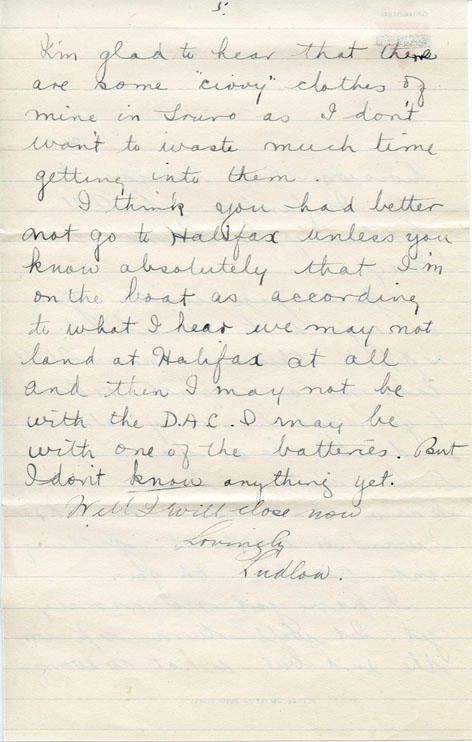 5.
I'm glad to hear that there
are some "civvy" clothes of
mine in Truro as I don't
want to waste much time
getting into them.
I think you had better
not go to Halifax unless you
know absolutely that I'm
on the boat as according
to what I hear we may not
land at Halifax at all
and then I may not be
with the D.A.C. I may be
with one of the batteries. But
I don't know anything yet.
Well I will close now
Lovingly
Ludlow.